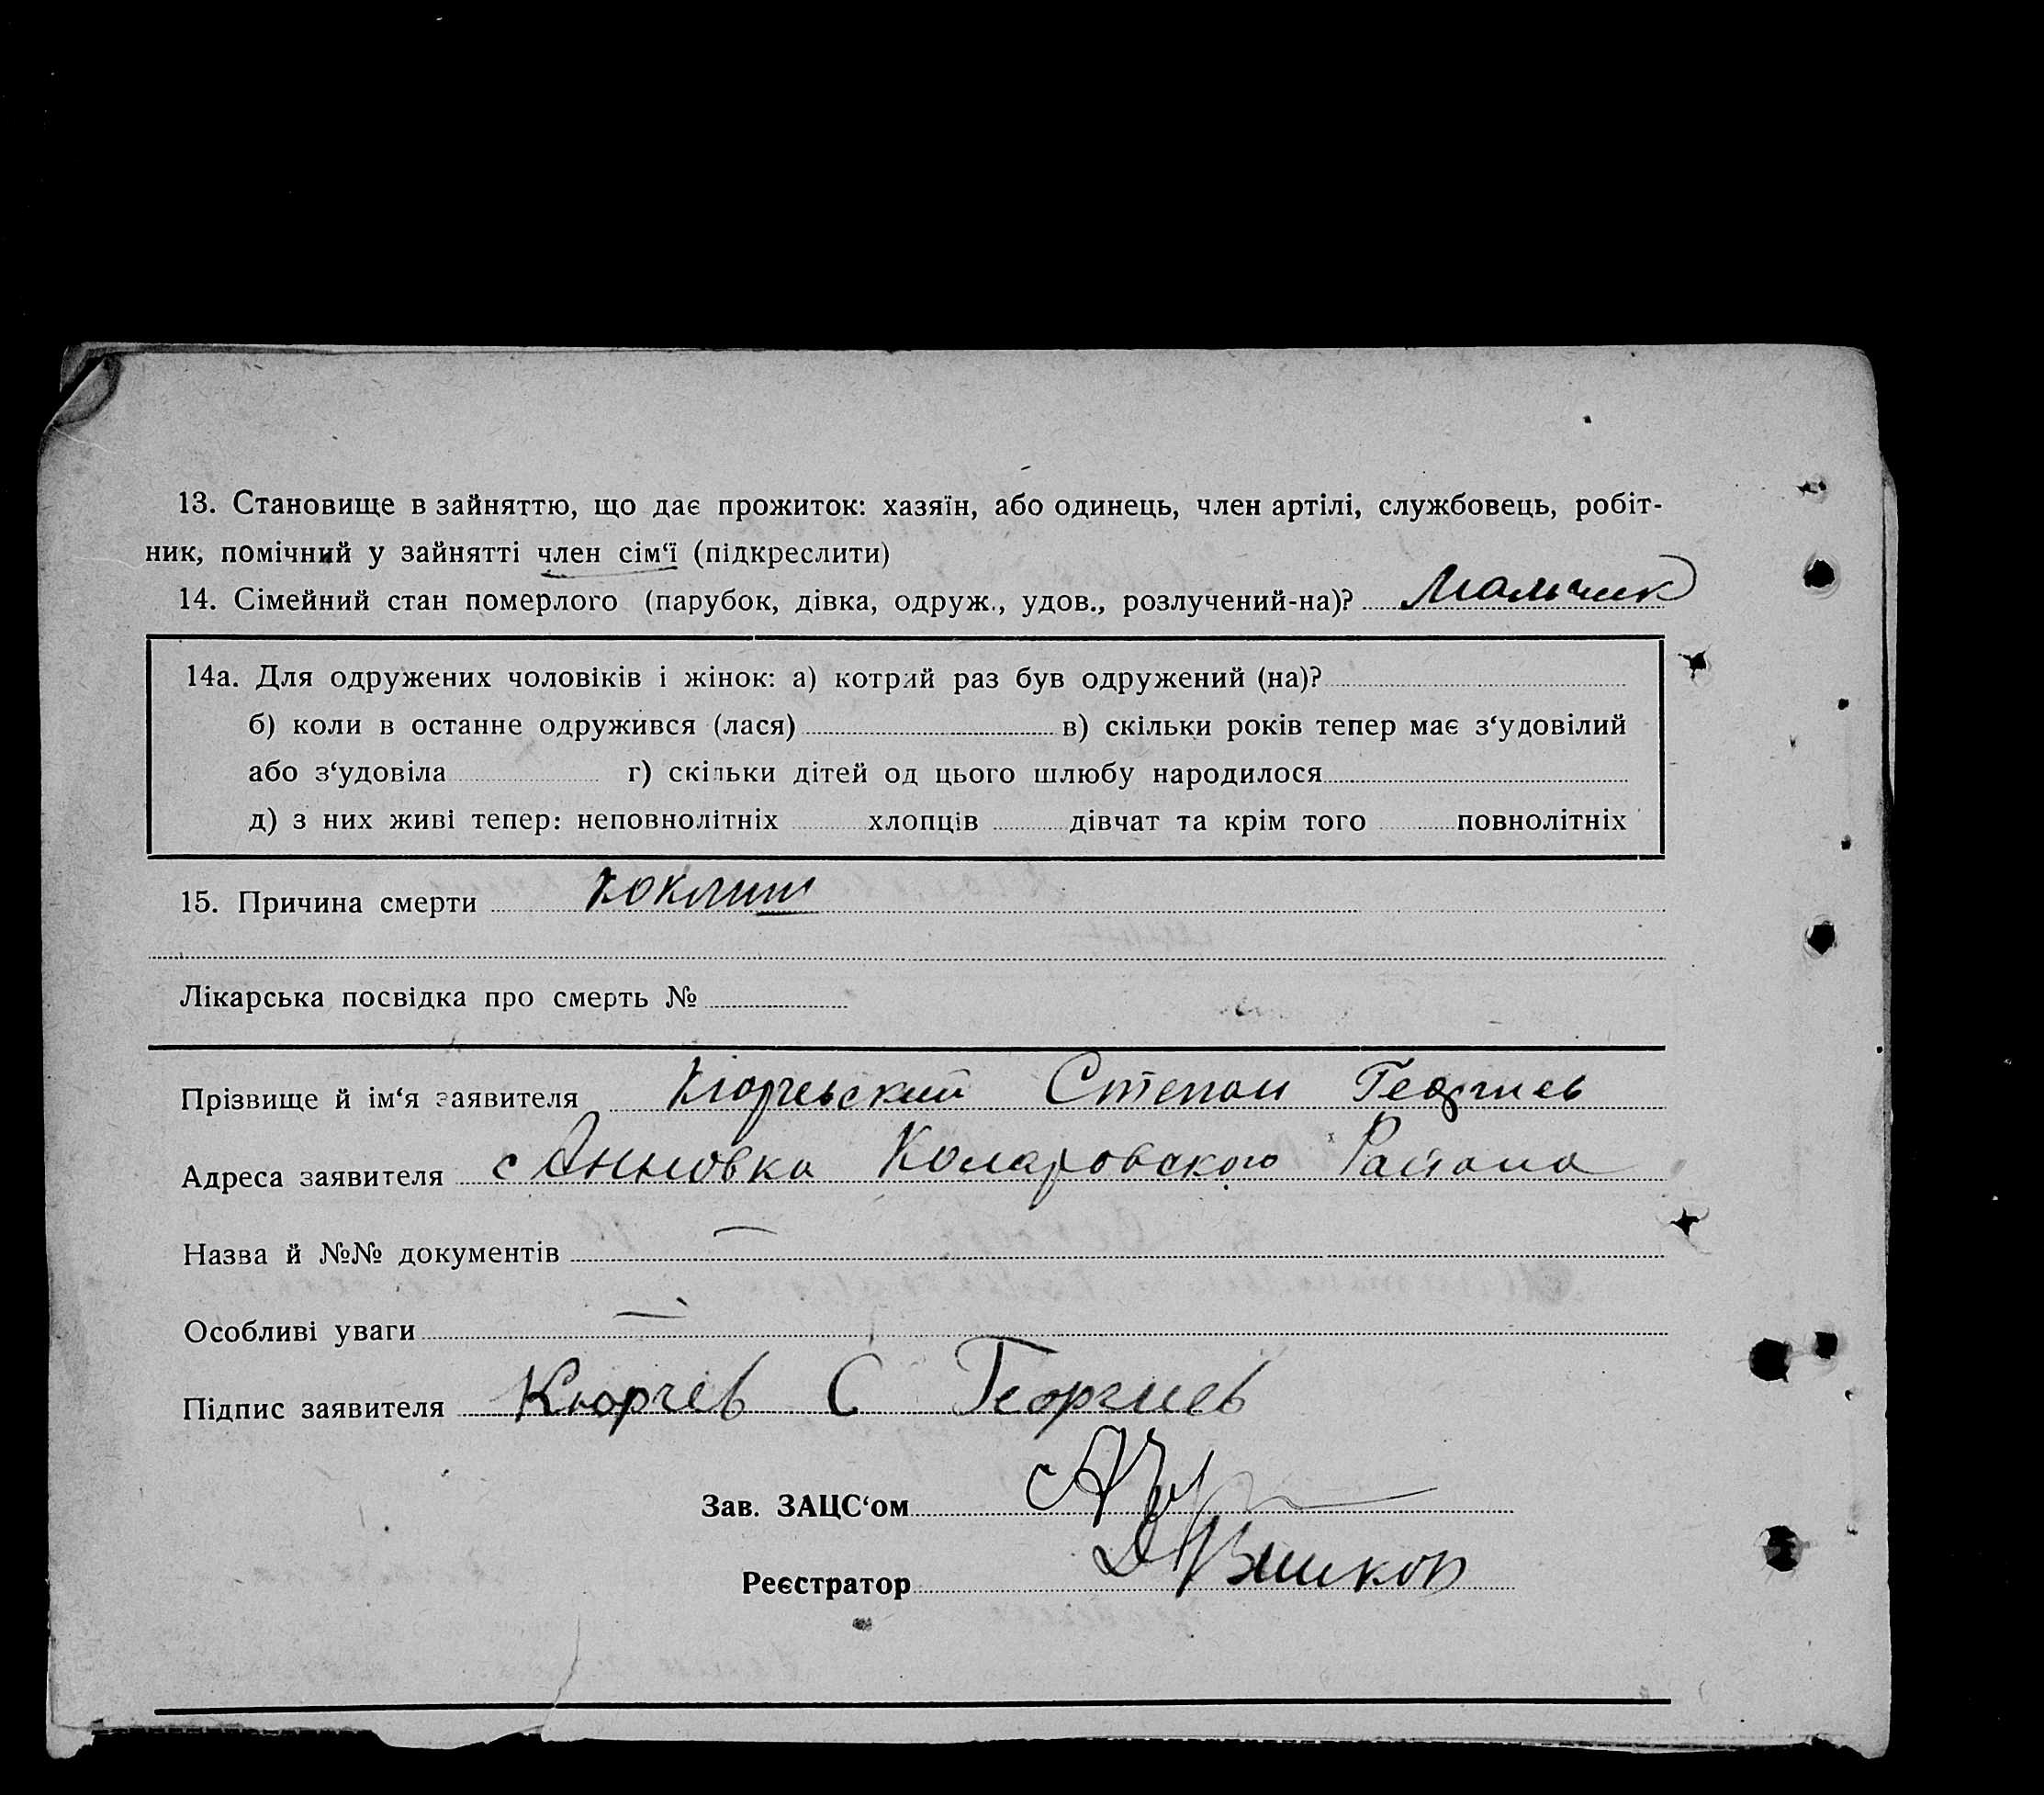 13. Становище в зайняттю, що дає прожиток: хазяїн, або одинець, член артілі, службовець, робіт-
ник, помічний у зайнятті член сім‘ї (підкреслити)
14. Сімейний стан померлого (парубок, дівка, одруж., удов., розлучений-на)? Мальчик
14а. Для одружених чоловіків і жінок: а) котрий раз був одружений (на)?
б) коли в останне одружився (лася) в) скільки років тепер має з‘удовілий
або з‘удовіла г) скільки дітей од цього шлюбу народилося
д) з них живі тепер: неповнолітніх хлопців дівчат та крім того повнолітніх
15. Причина смерти коклюш
Лікарська посвідка про смерть №
Прізвище й ім‘я заявителя Кюрчевский Степан Георгиев
Адреса заявителя с Анновка Коларовского Района
Назва й №№ документів —
Особливі уваги —
Підпис заявителя Кюрчев С Георгиев
Зав. ЗАЦС‘ом
Реєстратор